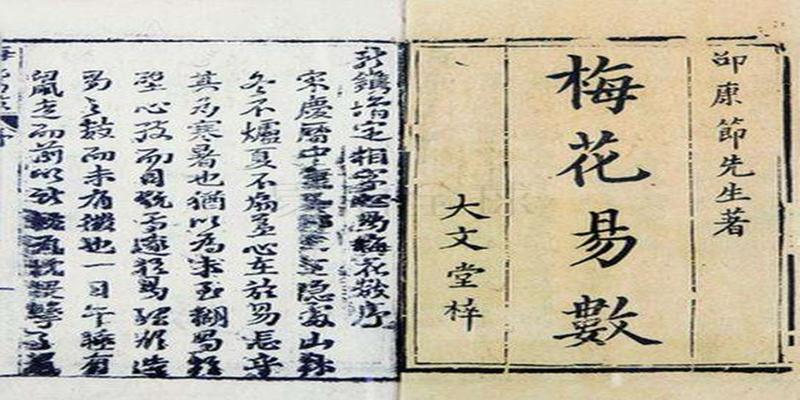 邵康節先生著
梅花易數
大文堂梓
新鐫增定相字心易梅花數序
宋慶曆中隱處山林
冬不爐夏不扇蓋心在於易忘乎
其為寒暑也猶以為未至糊易於
壁心致而目玩焉邃於易理欲造
易之數而未有徵也一日午睡有
鼠走而前以所